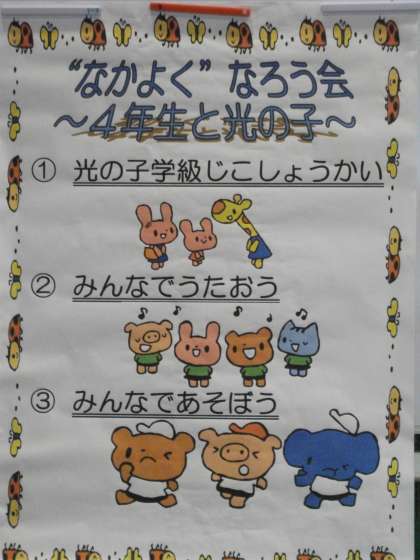 “なかよく”なろう会
～4年生と光の子～
① 光の子学級じこしょうかい
② みんなでうたおう
③ みんなであそぼう